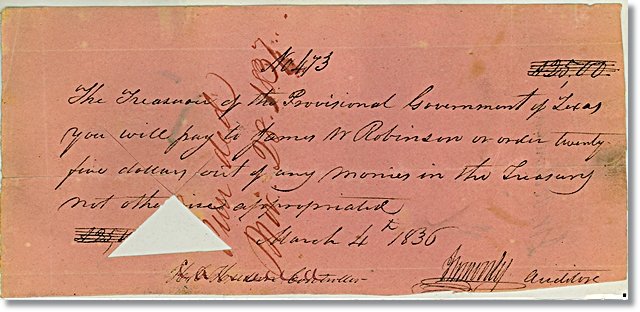 No 473
$25,00
The Treasurer of the Provisional Government of Texas
you will pay to James W Robinson or order twenty
five dollars out of any monies in the Treasury
not otherwise appropriated
March 4th 1836
Comptroller
Auditor